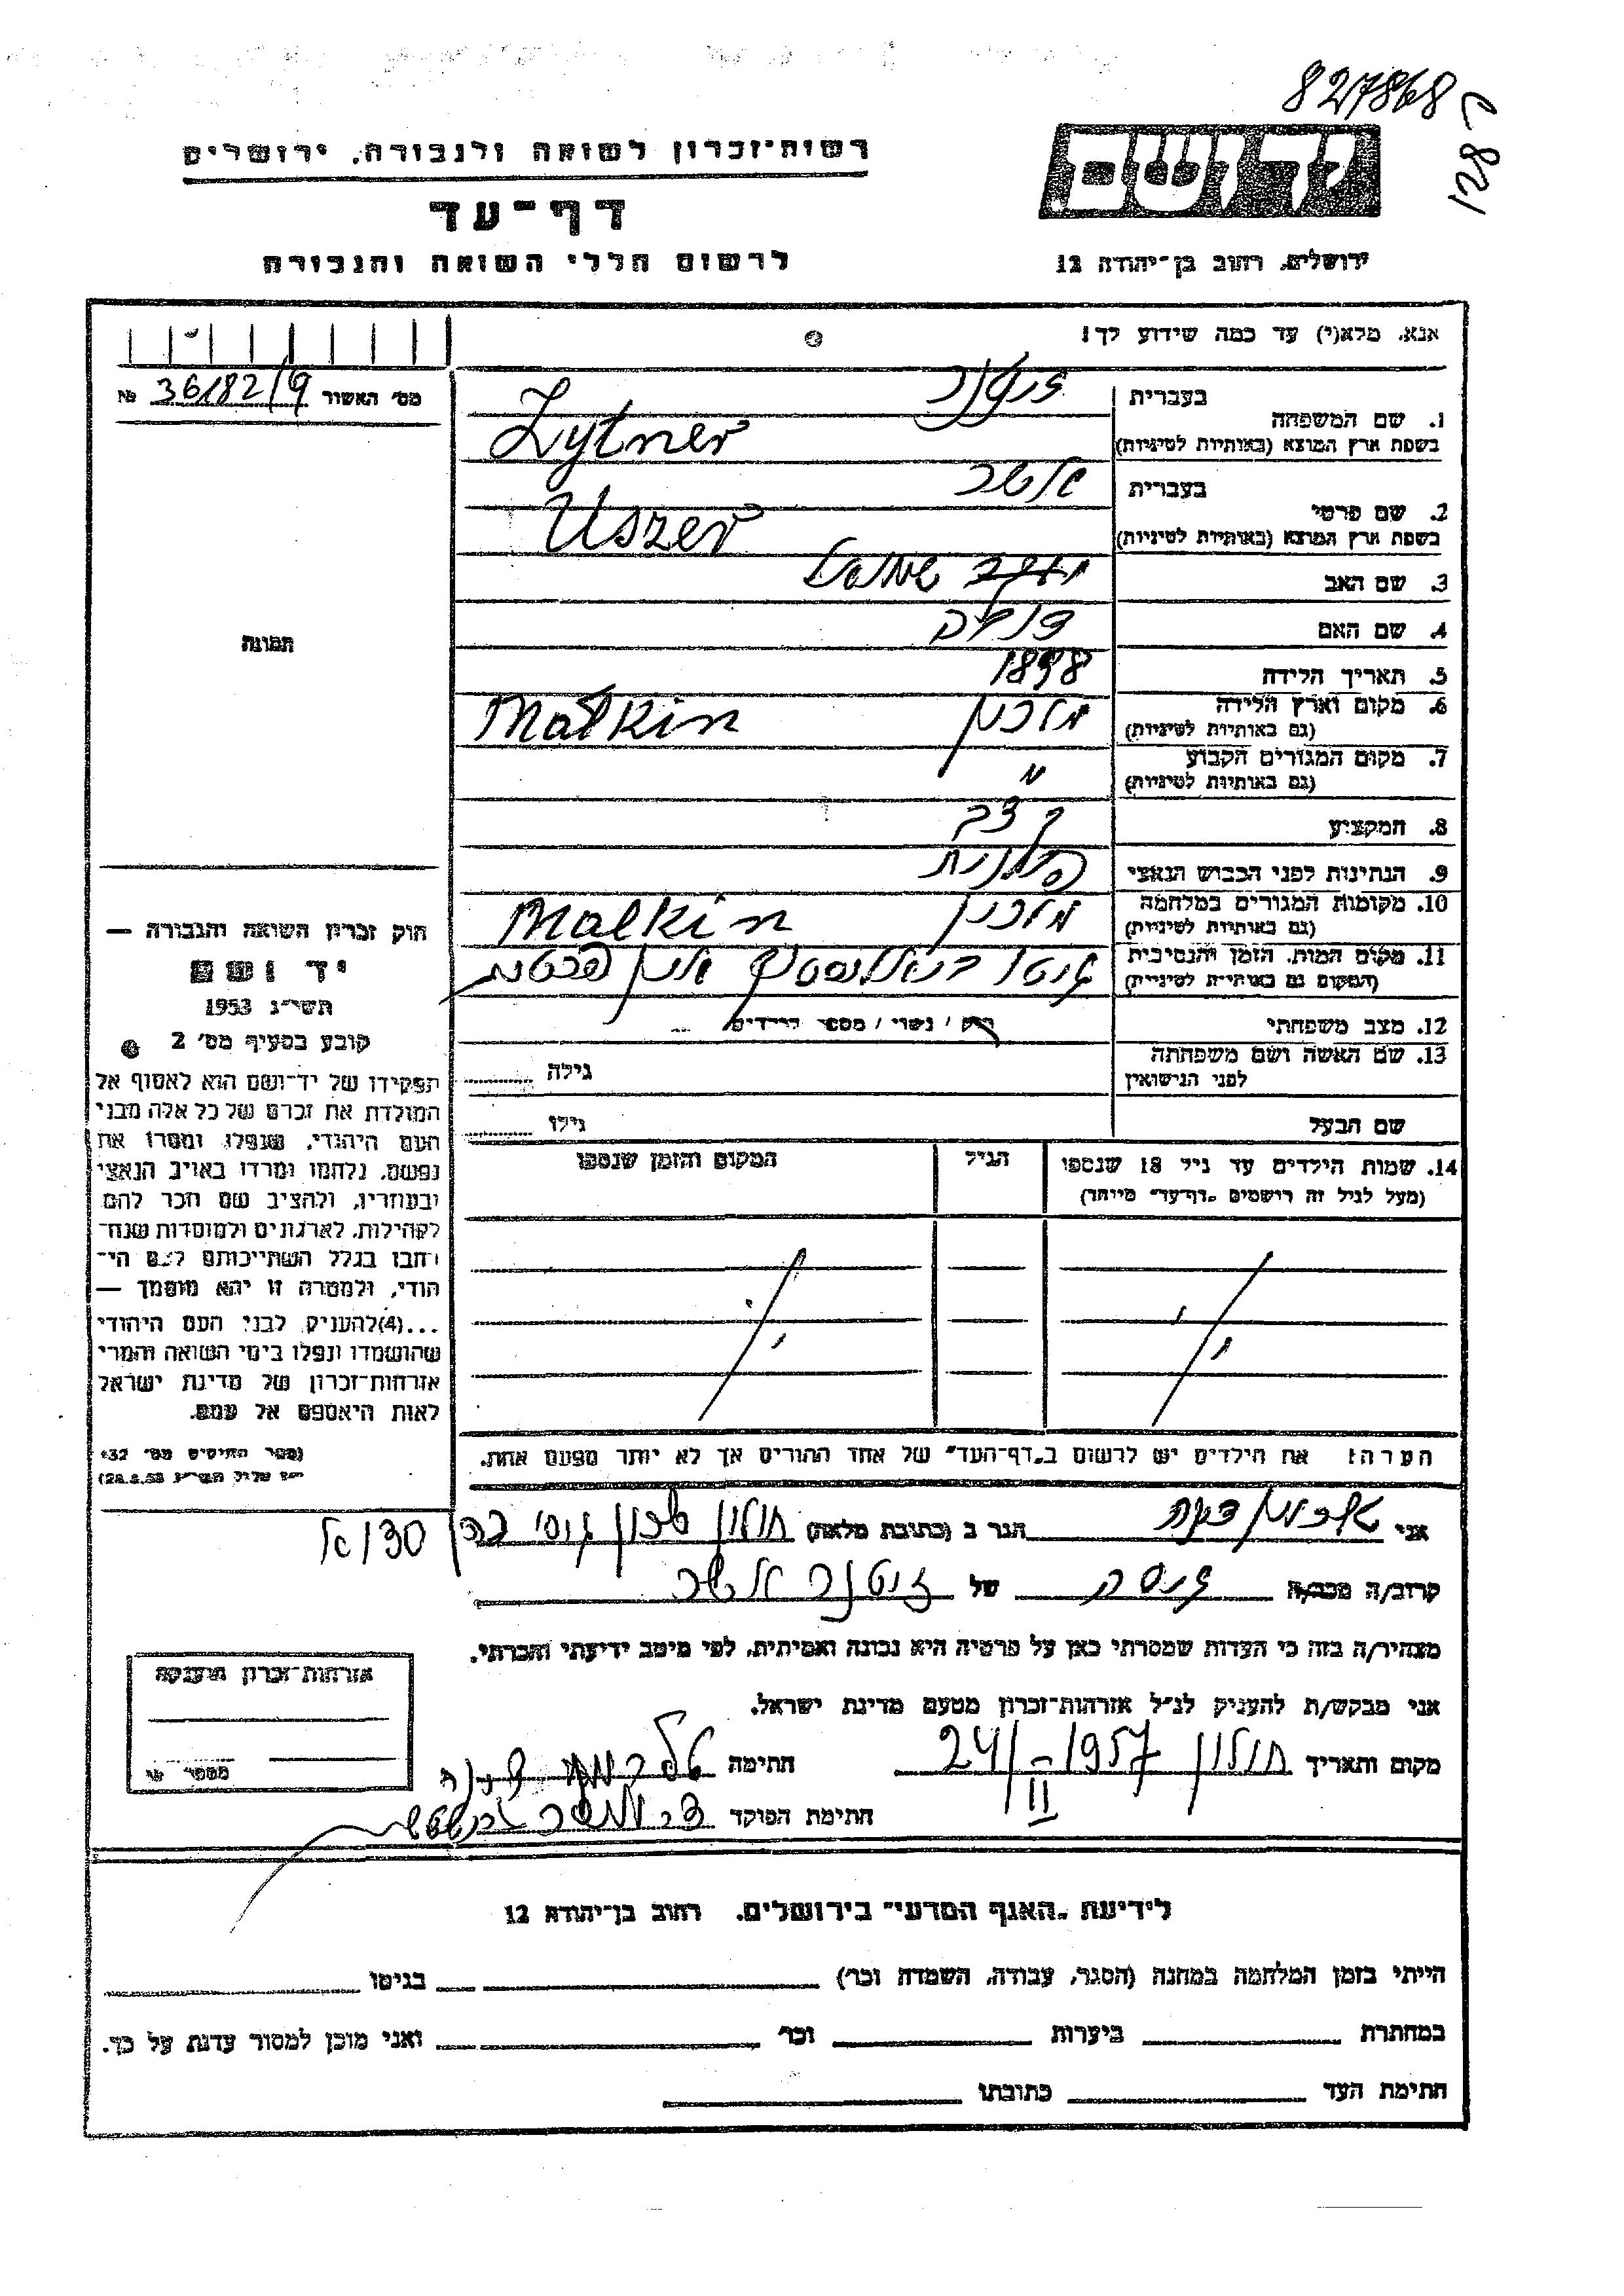 827868
821
יד ושם
רשות־זכרון לשואה ולגבורה, ירושלים
דף־עד
לרשום חללי השואה והגבורה
ירושלים, רחוב בן־יהודה 12
אנא, מלא(י) עד כמה שידוע לך!
מס׳ האשור 36/82/9 №
1. שם המשפחה בעברית זיטנר
בשפת ארץ המוצא (באותיות לטיניות) Zytner
2. שם פרטי בעברית אשר
בשפת ארץ המוצא (באותיות לטיניות) Uszer
3. שם האב
4. שם האם
5. תאריך הלידה 1898
6. מקום וארץ הלידה
(גם באותיות לטיניות) Małkin
7. מקום המגורים הקבוע "
(גם באותיות לטיניות)
8. המקציע קצב
9. הנתינות לפני הכבוש הנאצי פולנית
10. מקומות המגורים במלחמה
(גם באותיות לטיניות) Malkin
11. מקום המות, הזמן והנסיבות
(המקום גם באותיות לטיניות)
12. מצב משפחתי רוק / נשוי / מספר הילדים
13. שם האשה ושם משפחתה
לפני הנישואין
גילה
שם הבעל
גילו
14. שמות הילדים עד גיל 18 שנספו
(מעל לגיל זה רושמים „דף־עד״ מיוחד)
הגיל
המקום והזמן שנספו
הערה! את הילדים יש לרשום ב„דף־העד״ של אחד ההורים אך לא יותר מפעם אחת.
תמונה
חוק זכרון השואה והגבורה —
יד ושם
תשי״ג 1953
קובע בסעיף מס׳ 2
תפקידו של יד־ושם הוא לאסוף אל
המולדת את זכרם של כל אלה מבני
העם היהודי, שנפלו ומסרו את
נפשם, נלחמו ומרדו באויב הנאצי
ובעוזריו, ולהציב שם וזכר להם
לקהילות, לארגונים ולמוסדות שנח־
רבו בגלל השתייכותם לעם הי־
הודי, ולמטרה זו יהא מוסמך —
...(4) להעניק לבני העם היהודי
שהושמדו ונפלו בימי השואה והמרי
אזרחות־זכרון של מדינת ישראל
לאות היאספם אל עמם.
(ספר החוקים מס׳ 132
תשי״ג 28.8.53)
אני
הגר ב (כתובת מלאה) חולון
קרוב/ה מכר/ה גיסה של זיטנר אשר
מצהיר/ה בזה כי העדות שמסרתי כאן על פרטיה היא נכונה ואמיתית, לפי מיטב ידיעתי והכרתי.
אני מבקש/ת להעניק לנ״ל אזרחות־זכרון מטעם מדינת ישראל.
מקום ותאריך חולון 24/II-1957 חתימה
חתימת הפוקד
אזרחות־זכרון הוענקה
מספר
לידיעת „האגף המדעי״ בירושלים, רחוב בן־יהודה 12
הייתי בזמן המלחמה במחנה (הסגר, עבודה, השמדה וכו׳) בגיטו
במחתרת ביערות וכו׳ ואני מוכן למסור עדות על כך.
חתימת העד כתובתו